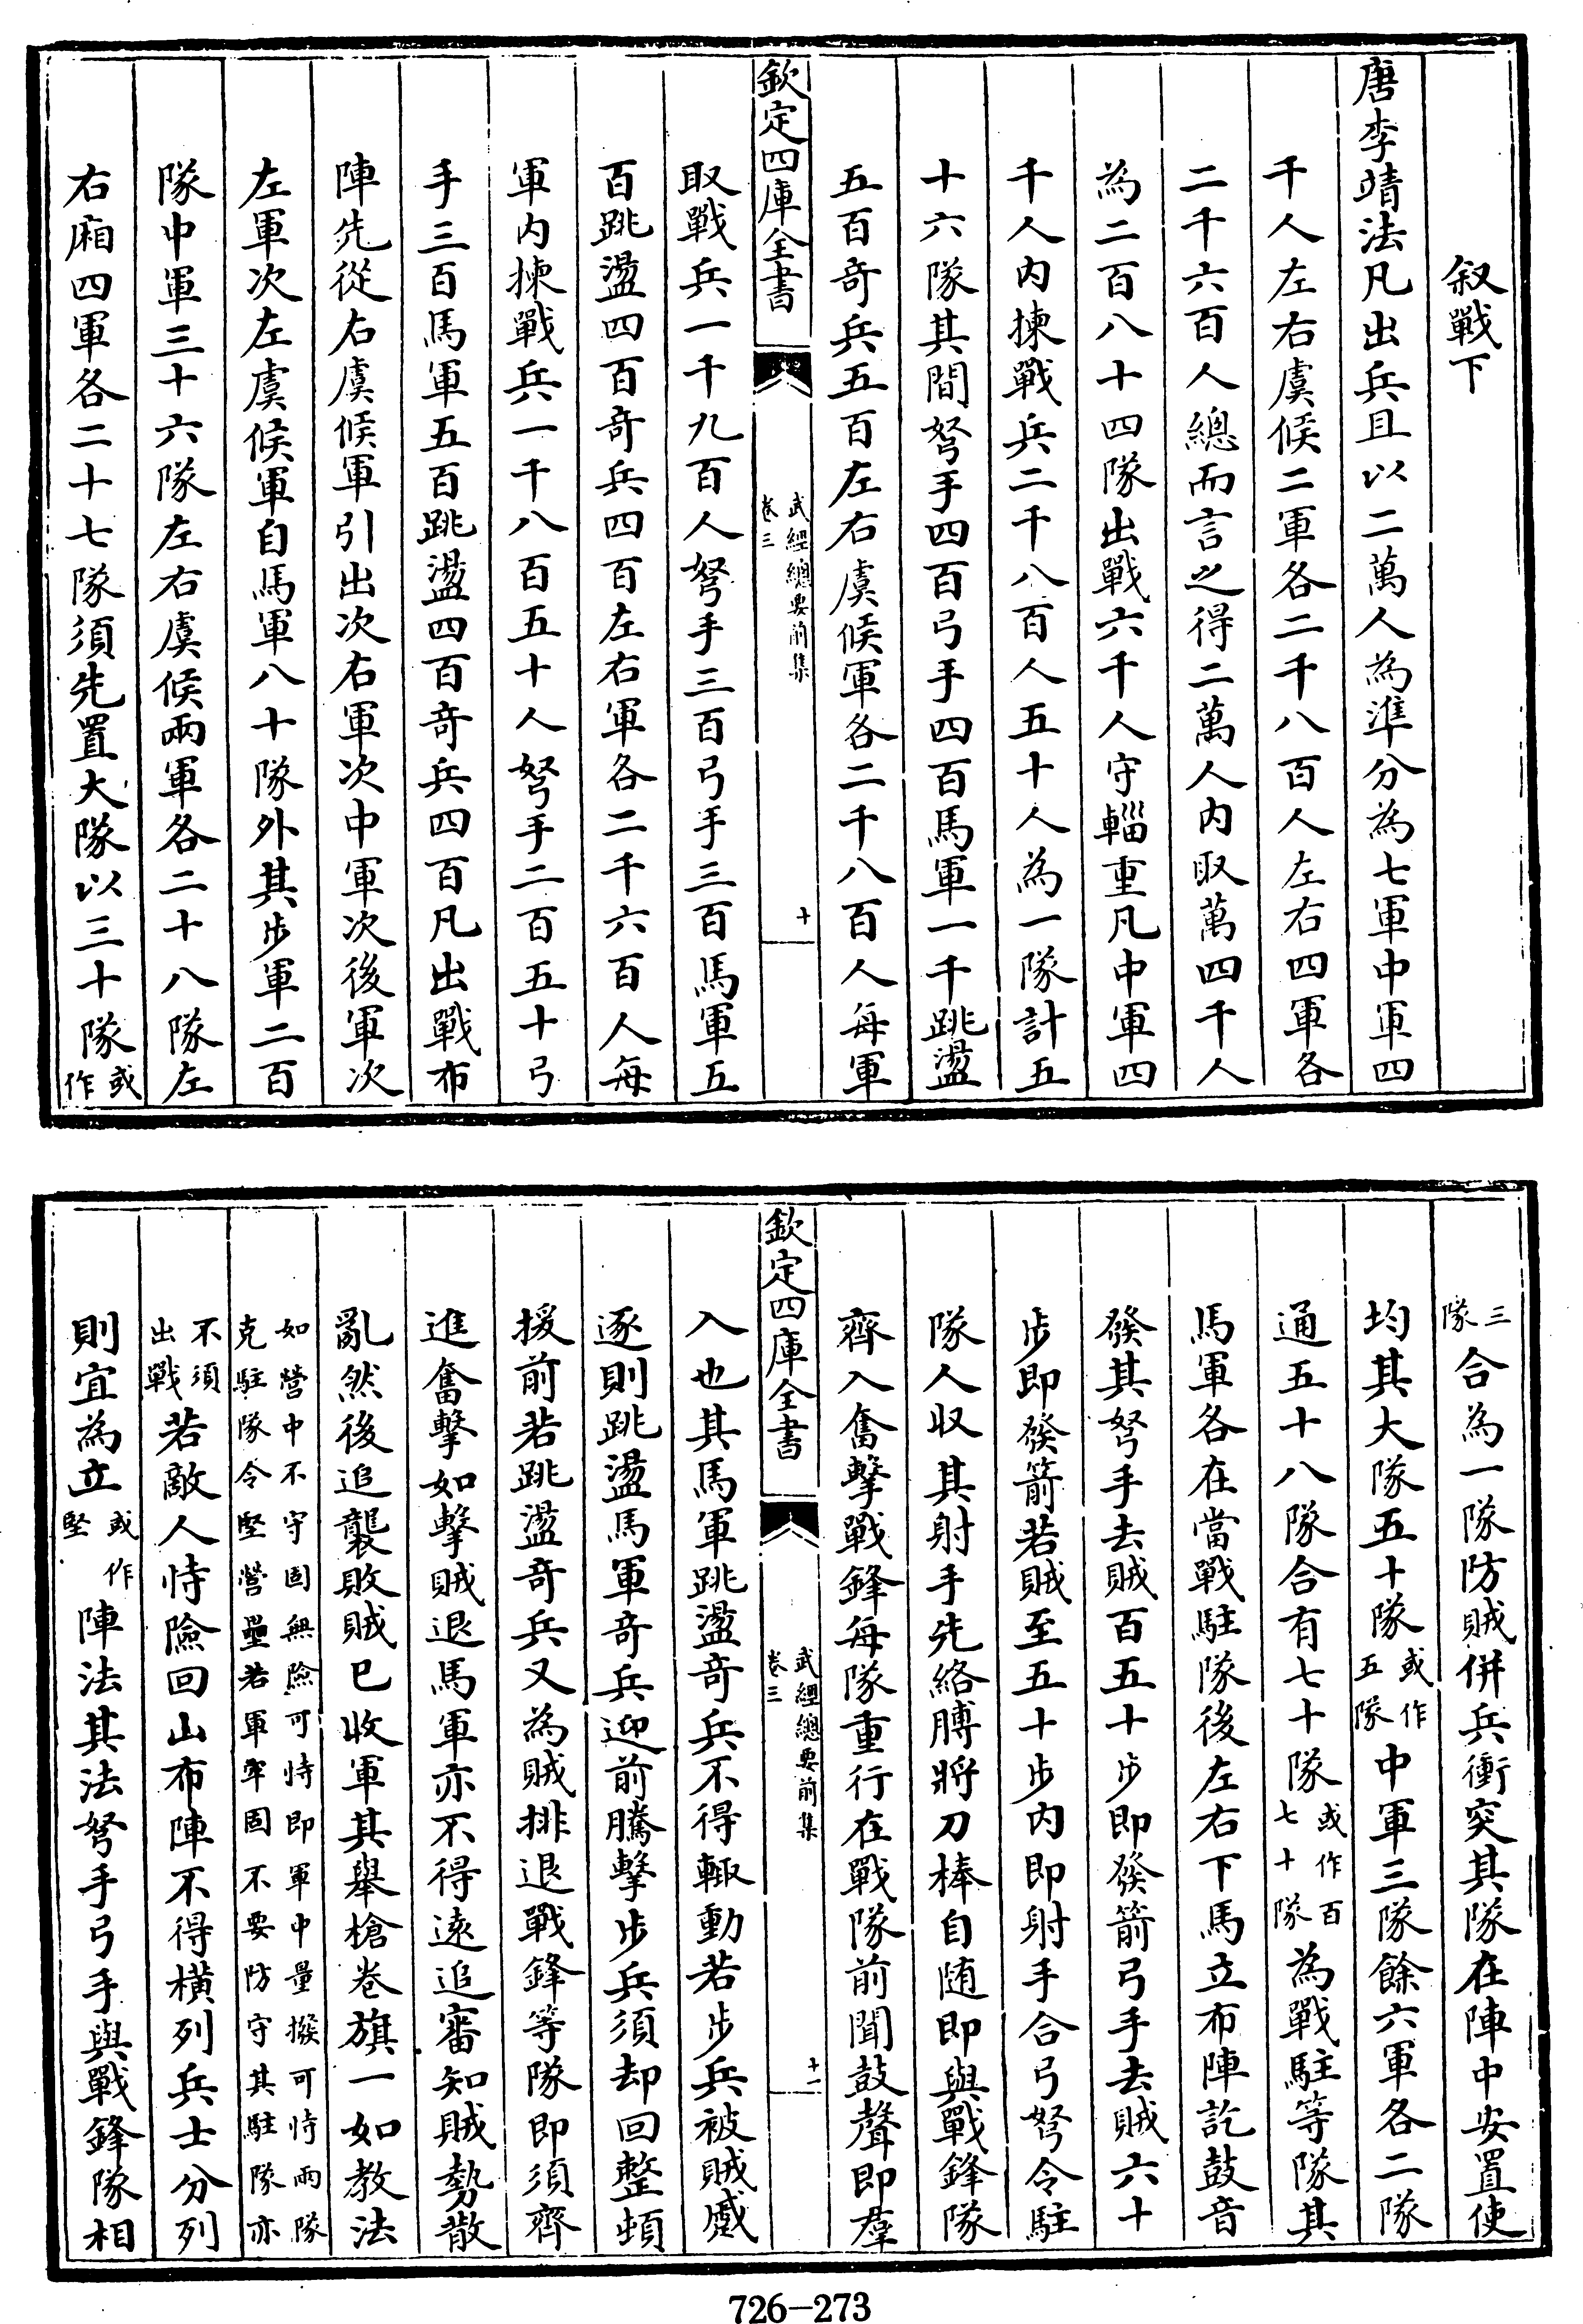 叙戰下
唐李靖法凡出兵且以二萬人為準分為七軍中軍四
千人左右虞候二軍各二千八百人左右四軍各
二千六百人總而言之得二萬人内取萬四千人
為二百八十四隊出戰六千人守輜重凡中軍四
千人内揀戰兵二千八百人五十人為一隊計五
十六隊其間弩手四百弓手四百馬軍一千跳盪
五百奇兵五百左右虞候軍各二千八百人每軍
欽定四庫全書
武經總要前集
卷三
十
取戰兵一千九百人弩手三百弓手三百馬軍五
百跳盪四百奇兵四百左右軍各二千六百人每
軍内揀戰兵一千八百五十人弩手二百五十弓
手三百馬軍五百跳盪四百奇兵四百凡出戰布
陣先從右虞候軍引出次右軍次中軍次後軍次
左軍次左虞候軍自馬軍八十隊外其步軍二百
隊中軍三十六隊左右虞候兩軍各二十八隊左
右廂四軍各二十七隊須先置大隊以三十隊或作
三隊合為一隊防賊併兵衝突其隊在陣中安置使
均其大隊五十隊或作五隊中軍三隊餘六軍各二隊
通五十八隊合有七十隊或作百七十隊為戰駐等隊其
馬軍各在當戰駐隊後左右下馬立布陣訖鼓音
發其弩手去賊百五十步即發箭弓手去賊六十
步即發箭若賊至五十步内即射手合弓弩令駐
隊人收其射手先絡膊將刀棒自随即與戰鋒隊
齊入奮擊戰鋒每隊重行在戰隊前聞鼓聲即羣
欽定四庫全書
武經總要前集
卷三
十一
入也其馬軍跳盪奇兵不得輙動若步兵被賊蹙
逐則跳盪馬軍奇兵迎前騰擊步兵須却回整頓
援前若跳盪奇兵又為賊排退戰鋒等隊即須齊
進奮擊如擊賊退馬軍亦不得遠追審知賊勢散
亂然後追襲敗賊已收軍其舉槍卷旗一如教法
如營中不守固無險可恃即軍中量撥可恃兩隊
克駐隊令堅營壘若軍牢固不要防守其駐隊亦
不須出戰若敵人恃險回山布陣不得横列兵士分列
則宜為立或作堅陣法其法弩手弓手與戰鋒隊相
726-273